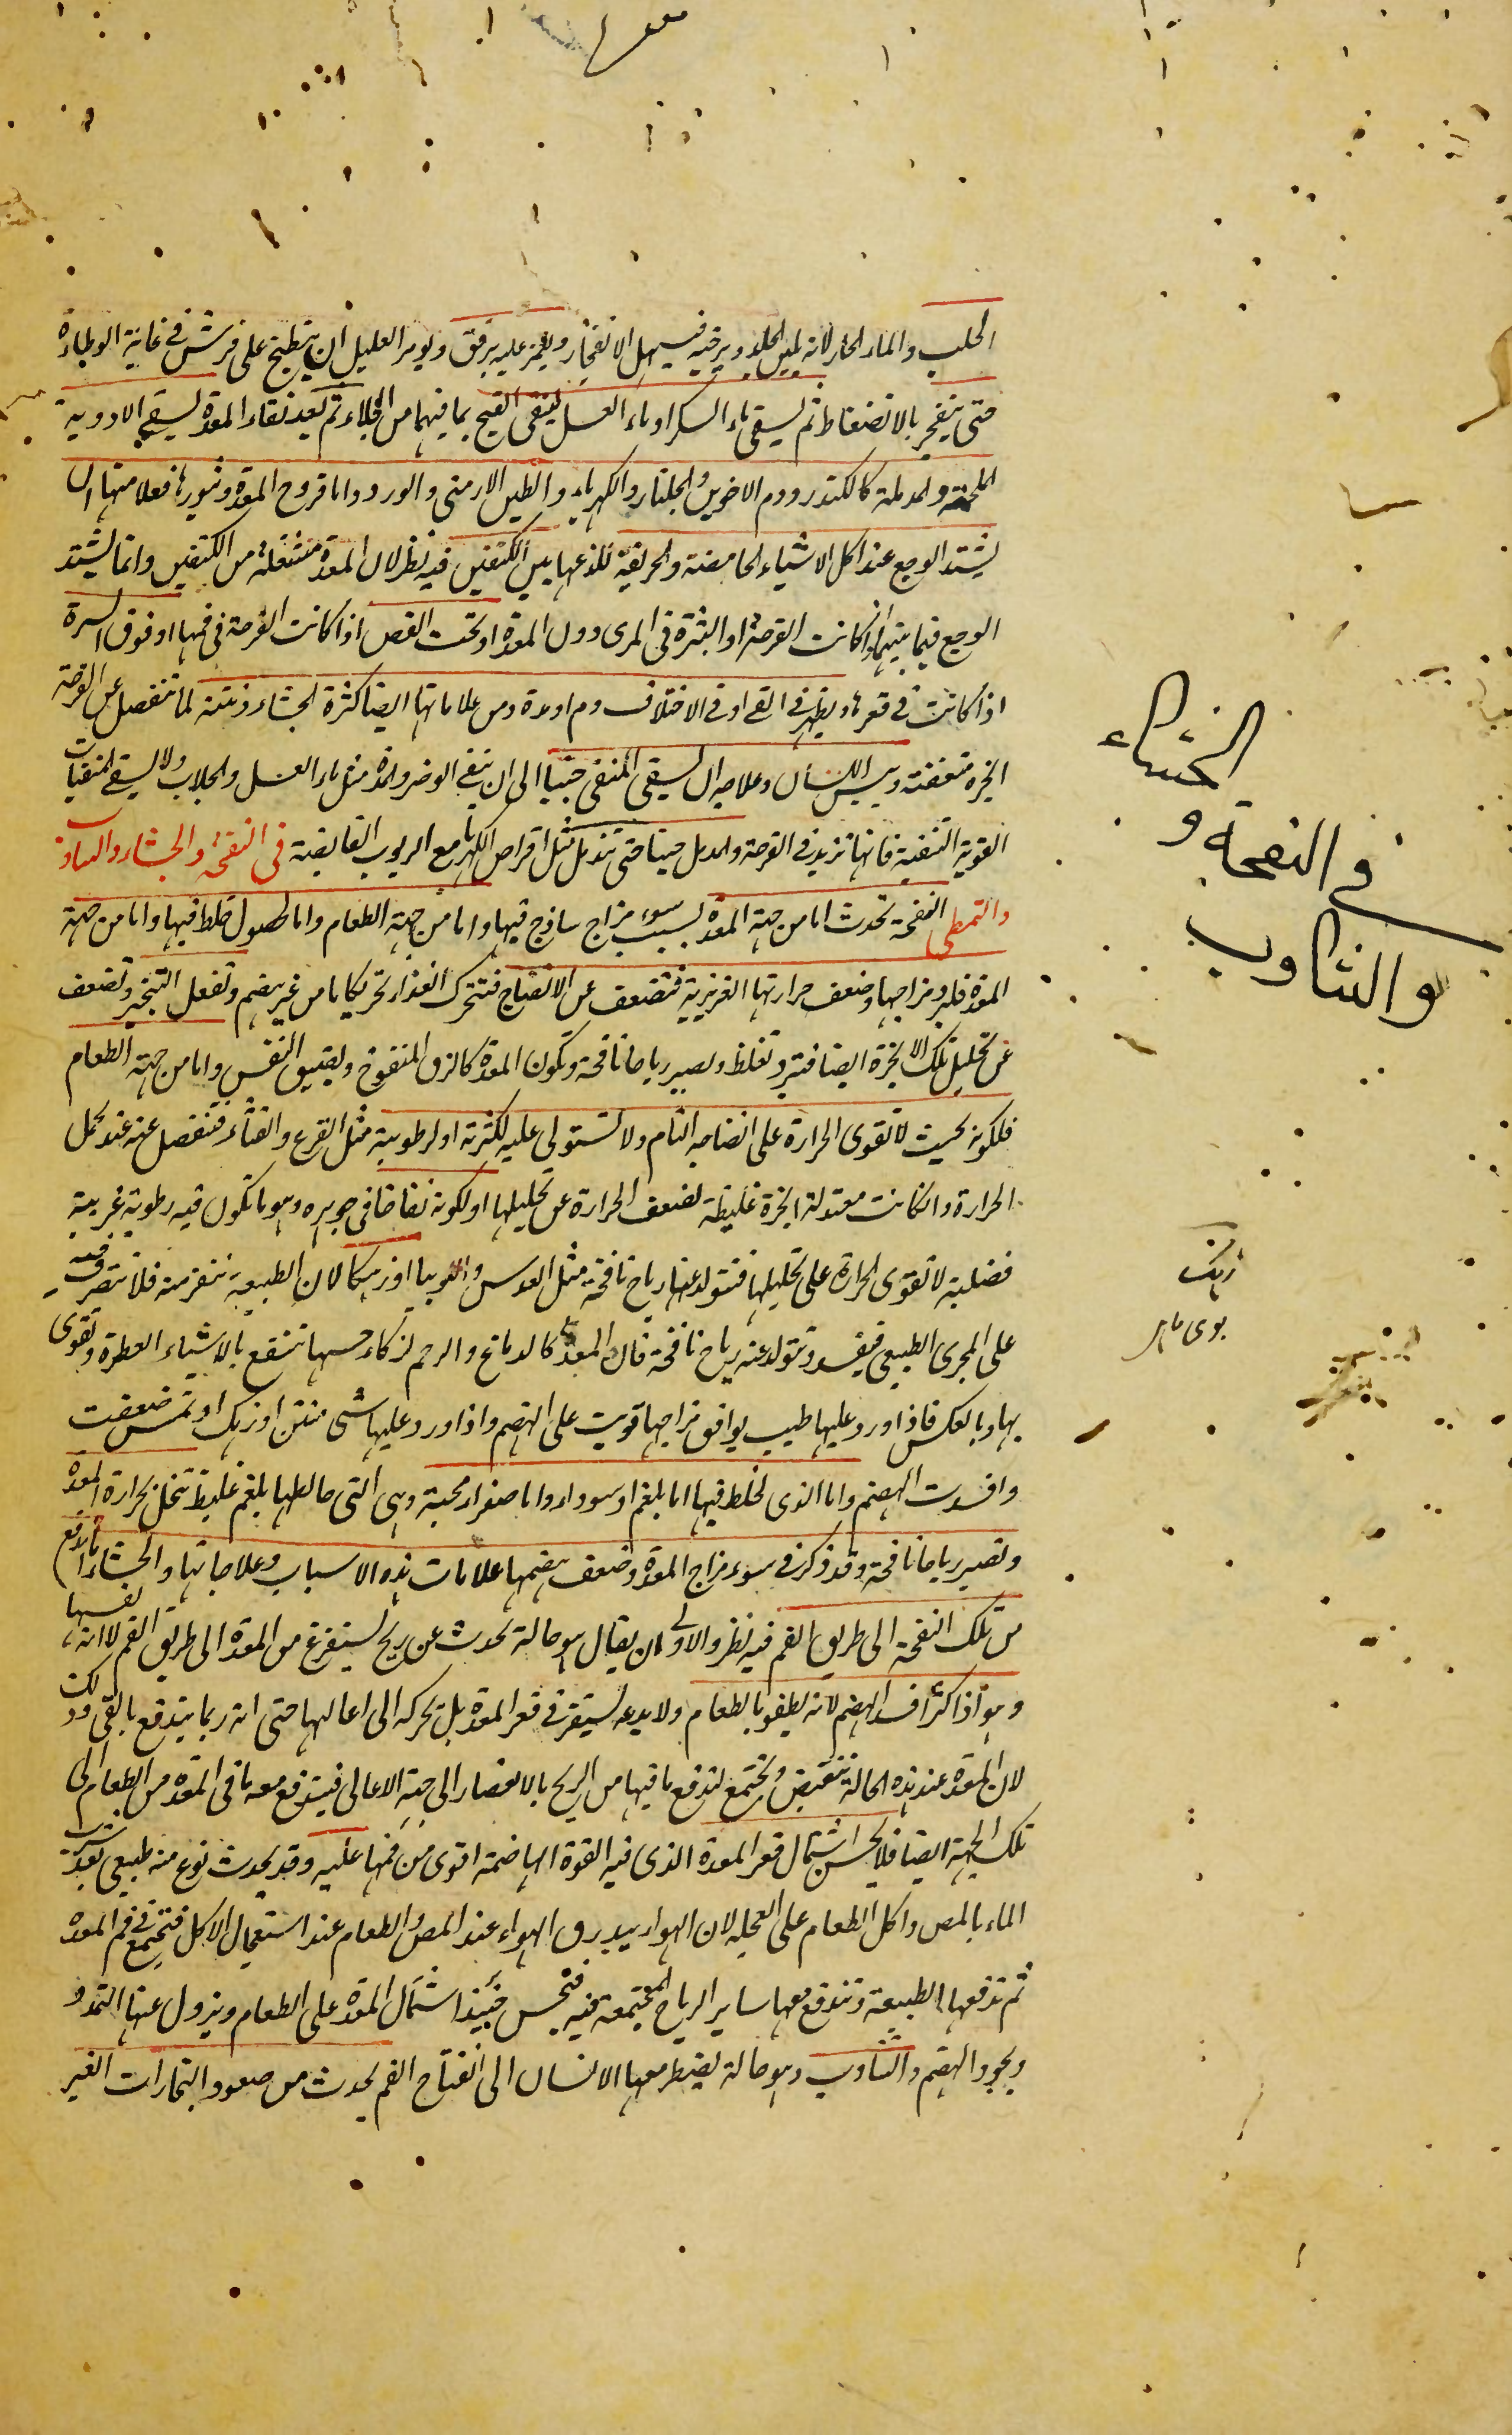 الحلب والماء الحار لانه يلين الجلد ويرخيه فيسهل الانفجار ويغمز عليه برفق ويومر العليل ان ينبطح على فرش في غاية الوطاءة
حتى ينفجر بالانضغاط ثم يسقى ماء السكر او ماء العسل لينقى القيح بما فيهما من الجلاء ثم بعد نقاء المعدة يسقى الادوية
الملحمة والمدملة كالكندر ودم الاخوين والجلنار والكهرباء والطين الارمنى والورد واما قروح المعدة وبثورها فعلامتها ان
يشتد الوجع عند اكل الاشياء الحامضة والحريفة للذعها بين الكتفين فيه نظر لان المعدة متسفلة من الكتفين وانما يشتد
الوجع فيما بينهما اذا كانت القرحة او البثرة في المرى دون المعدة او تحت القص اذا كانت القرحة في فمها او فوق السرة
اذا كانت في قعرها ويظهر في القى او في الاختلاف دم او مدة ومن علاماتها ايضا كثرة الجشاء ونتنه لما تنفصل عن القرحة
ابخرة متعفنة ويبس اللسان وعلاجه ان يسقى المنقى حينا الى ان ينقى الوضر والمدة مثل ماء العسل والجلاب ولا يسقى المنقيات
القوية التنقية فانها تزيد في القرحة والمدمل حينا حتى تندمل مثل اقراص الكهربا مع الربوب القابضة في النفخة والجشاء والتثاوب
والتمطى النفخة تحدث اما من جهة المعدة بسبب سوء مزاج ساذج فيها واما من جهة الطعام واما لحصول خلط فيها واما من جهة
المعدة فلبرد مزاجها وضعف حرارتها الغريزية فتضعف عن الانضاج فتتحرك الغذاء تحريكا ما من غير هضم وتفعل التبخير وتضعف
عن تحليل تلك الابخرة ايضا فتبرد وتغلظ وتصير رياحا نافخة وتكون المعدة كالزق المنفوخ ويضيق النفس واما من جهة الطعام
فلكونه بحيث لا تقوى الحرارة على انضاجه التام ولا تستولى عليه لكثرته او لرطوبته مثل القرع والقثاء فتنفصل عنه عند عمل
الحرارة وان كانت معتدلة ابخرة غليظة لضعف الحرارة عن تحليلها او لكونه نفاخا في جوهره وهو ما تكون فيه رطوبة غريبة
فضلية لا تقوى الحرارة على تحليلها فتتولد عنها رياح نافخة مثل العدس واللوبيا او زهكا لان الطبيعة تنفر منه فلا تتصرف فيه
على المجرى الطبيعي فيفسد وتتولد عنه رياح نافخة فان المعدة كالدماغ والرحم لذكاء حسها تنتفع بالاشياء العطرة وتقوى
بها وبالعكس فاذا ورد عليها طيب يوافق مزاجها قويت على الهضم واذا ورد عليها شى منتن او زهك او تمس ضعفت
وافسدت الهضم واما الذى لخلط فيها اما بلغم او سوداء واما صفراء محية وهى التى خالطها بلغم غليظ تنحل بحرارة المعدة
وتصير رياحا نافخة وقد ذكر في سوء مزاج المعدة وضعف هضمها علامات هذه الاسباب وعلاجاتها والجشاء ما لا يدفع
من تلك النفخة الى طريق الفم فيه نظر والاولى ان يقال هو حالة تحدث عن ريح يستفرغ من المعدة الى طريق الفم لا انه نفسها
وهو اذا كثر افسد الهضم لانه يطفو بالطعام ولا يدعه يستقر في قعر المعدة بل تحركه الى اعاليها حتى انه ربما يندفع بالقى وذلك
لان المعدة عند هذه الحالة تنقبض وتجتمع لتدفع ما فيها من الريح بالانعصار الى جهة الاعالى فيندفع معه ما في المعدة من الطعام الى
تلك الجهة ايضا فلا يحسن اشتمال قعر المعدة الذى فيه القوة الهاضمة اقوى من فمها عليه وقد يحدث نوع منه طبيعى بعد شرب
الماء بالمص واكل الطعام على العجلة لان الهواء عند المص والطعام عند استعجال الاكل فتجتمع في فم المعدة
ثم تدفعها الطبيعة وتندفع معها ساير الرياح المجتمعة فيه فتحسن حينئذ اشتمال المعدة على الطعام ويزول عنها التمدد
ويجود الهضم والتثاوب وهو حالة يضطر معها الانسان الى انفتاح الفم يحدث من صعود البخارات الغير
الجشاء
في النفخة و
والتثاوب
زهك
بوى ماهى